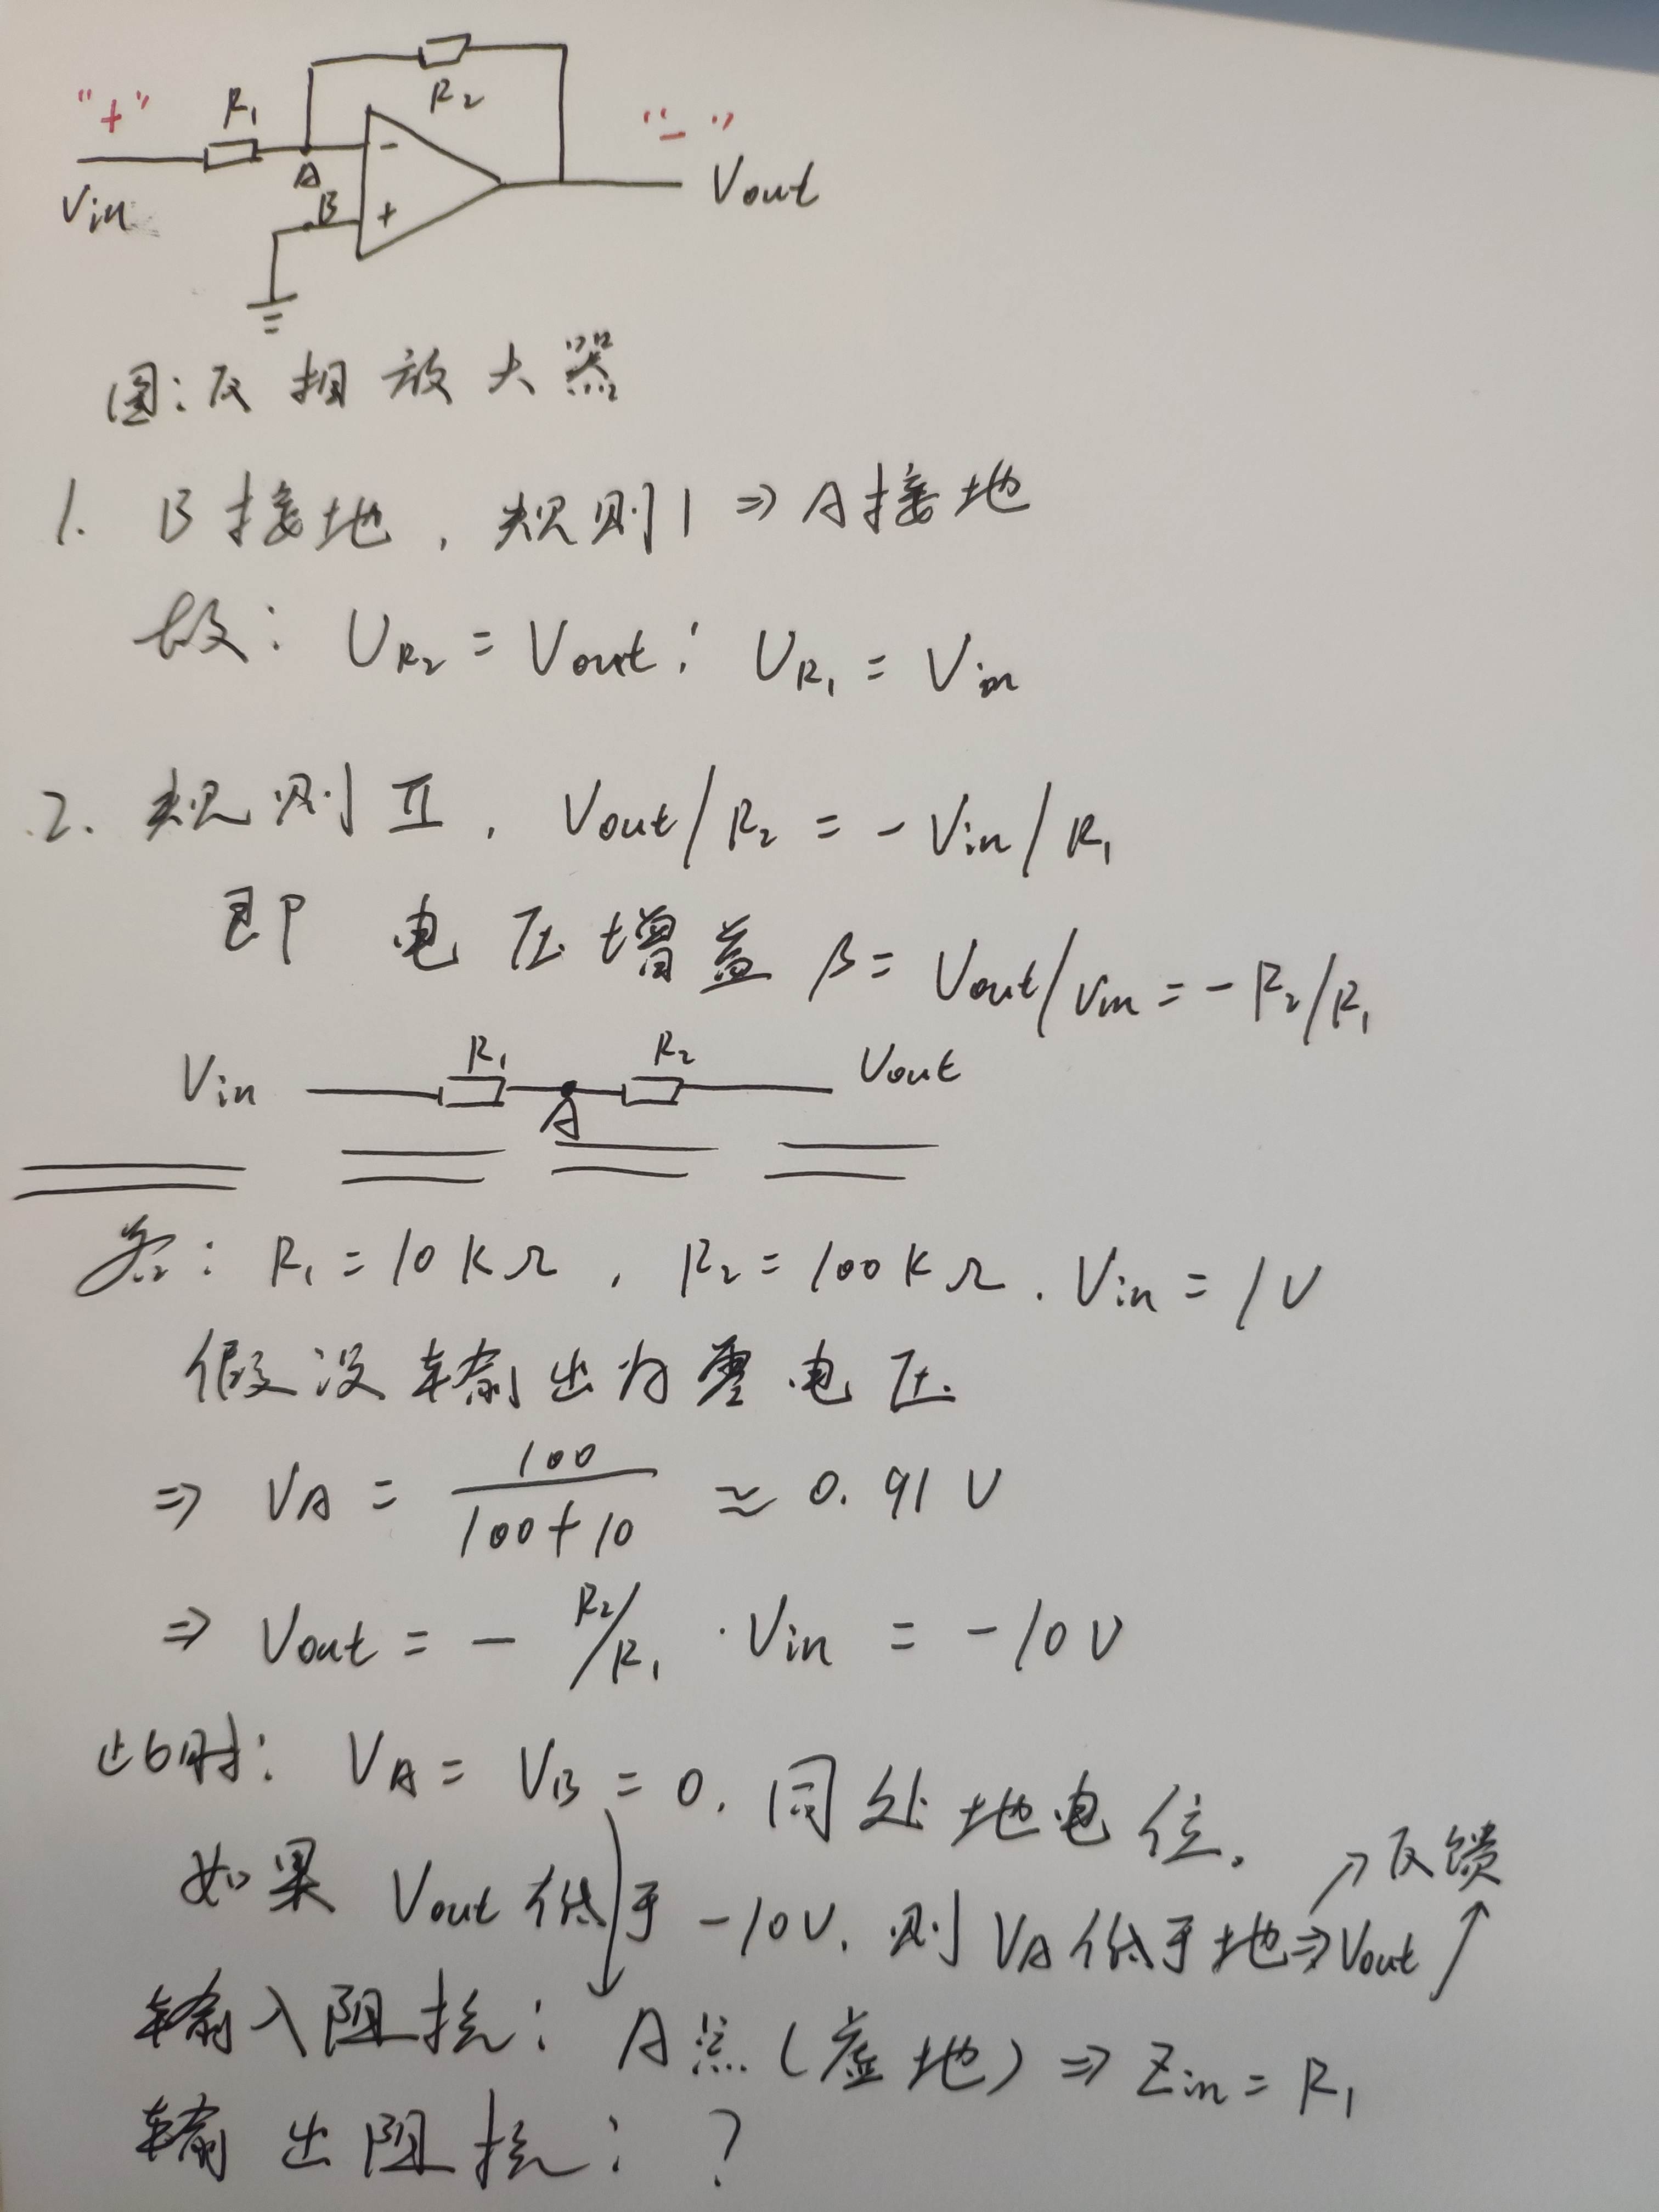 "+" R₁ R₂ "-"
Vin A - Vout
B +
图：反相放大器
1. B接地，规则1 ⇒ A接地
故：U_R₂ = Vout； U_R₁ = Vin
2. 规则Ⅱ，Vout/R₂ = -Vin/R₁
即 电压增益 β = Vout/Vin = -R₂/R₁
Vin R₁ A R₂ Vout
R₁ = 10KΩ，R₂ = 100KΩ. Vin = 1V
假设输出为零电压
⇒ V_A = 100/(100+10) ≈ 0.91V
⇒ Vout = - R₂/R₁ · Vin = -10V
此时：V_A = V_B = 0, 同处地电位。
如果 Vout低于 -10V, 则V_A低于地⇒Vout↑ ↗反馈
输入阻抗：A点（虚地）⇒ Zin = R₁
输出阻抗：？